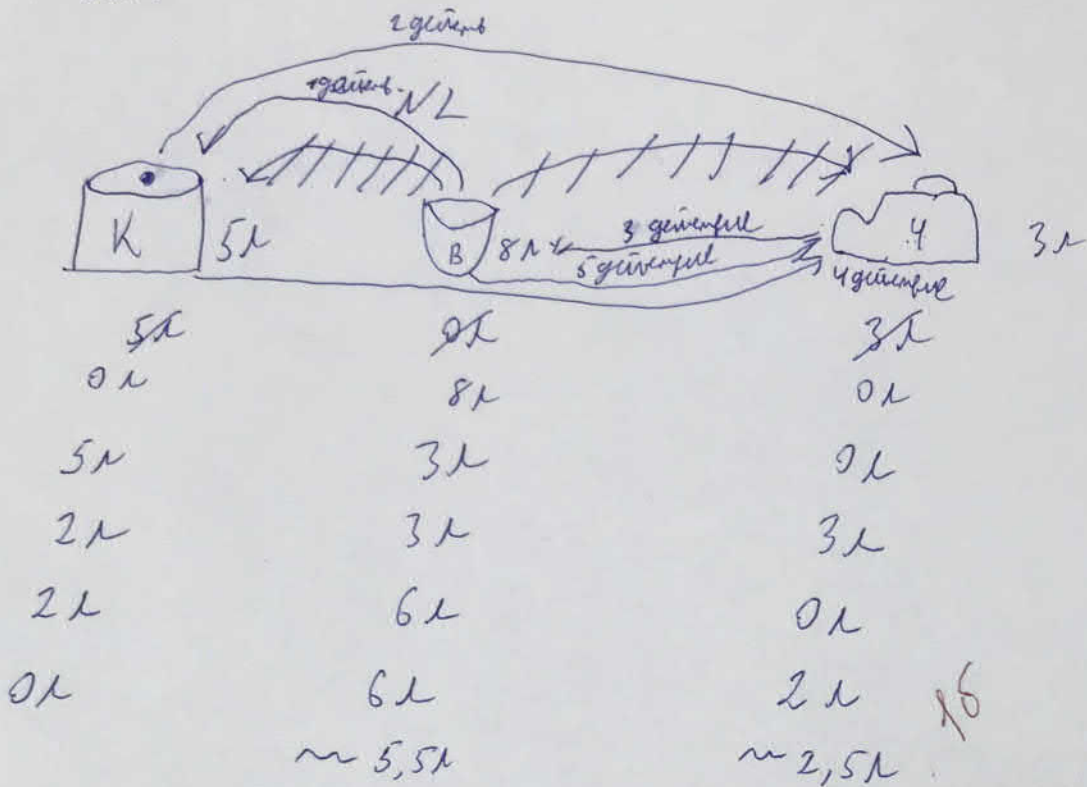 2 действ
1 действ. N2
К 5л В 8л 3 действие Ч 3л
5 действие 4 действие
5л 0л 3л
0л 8л 0л
5л 3л 0л
2л 3л 3л
2л 6л 0л
0л 6л 2л 1б
~ 5,5л ~ 2,5л